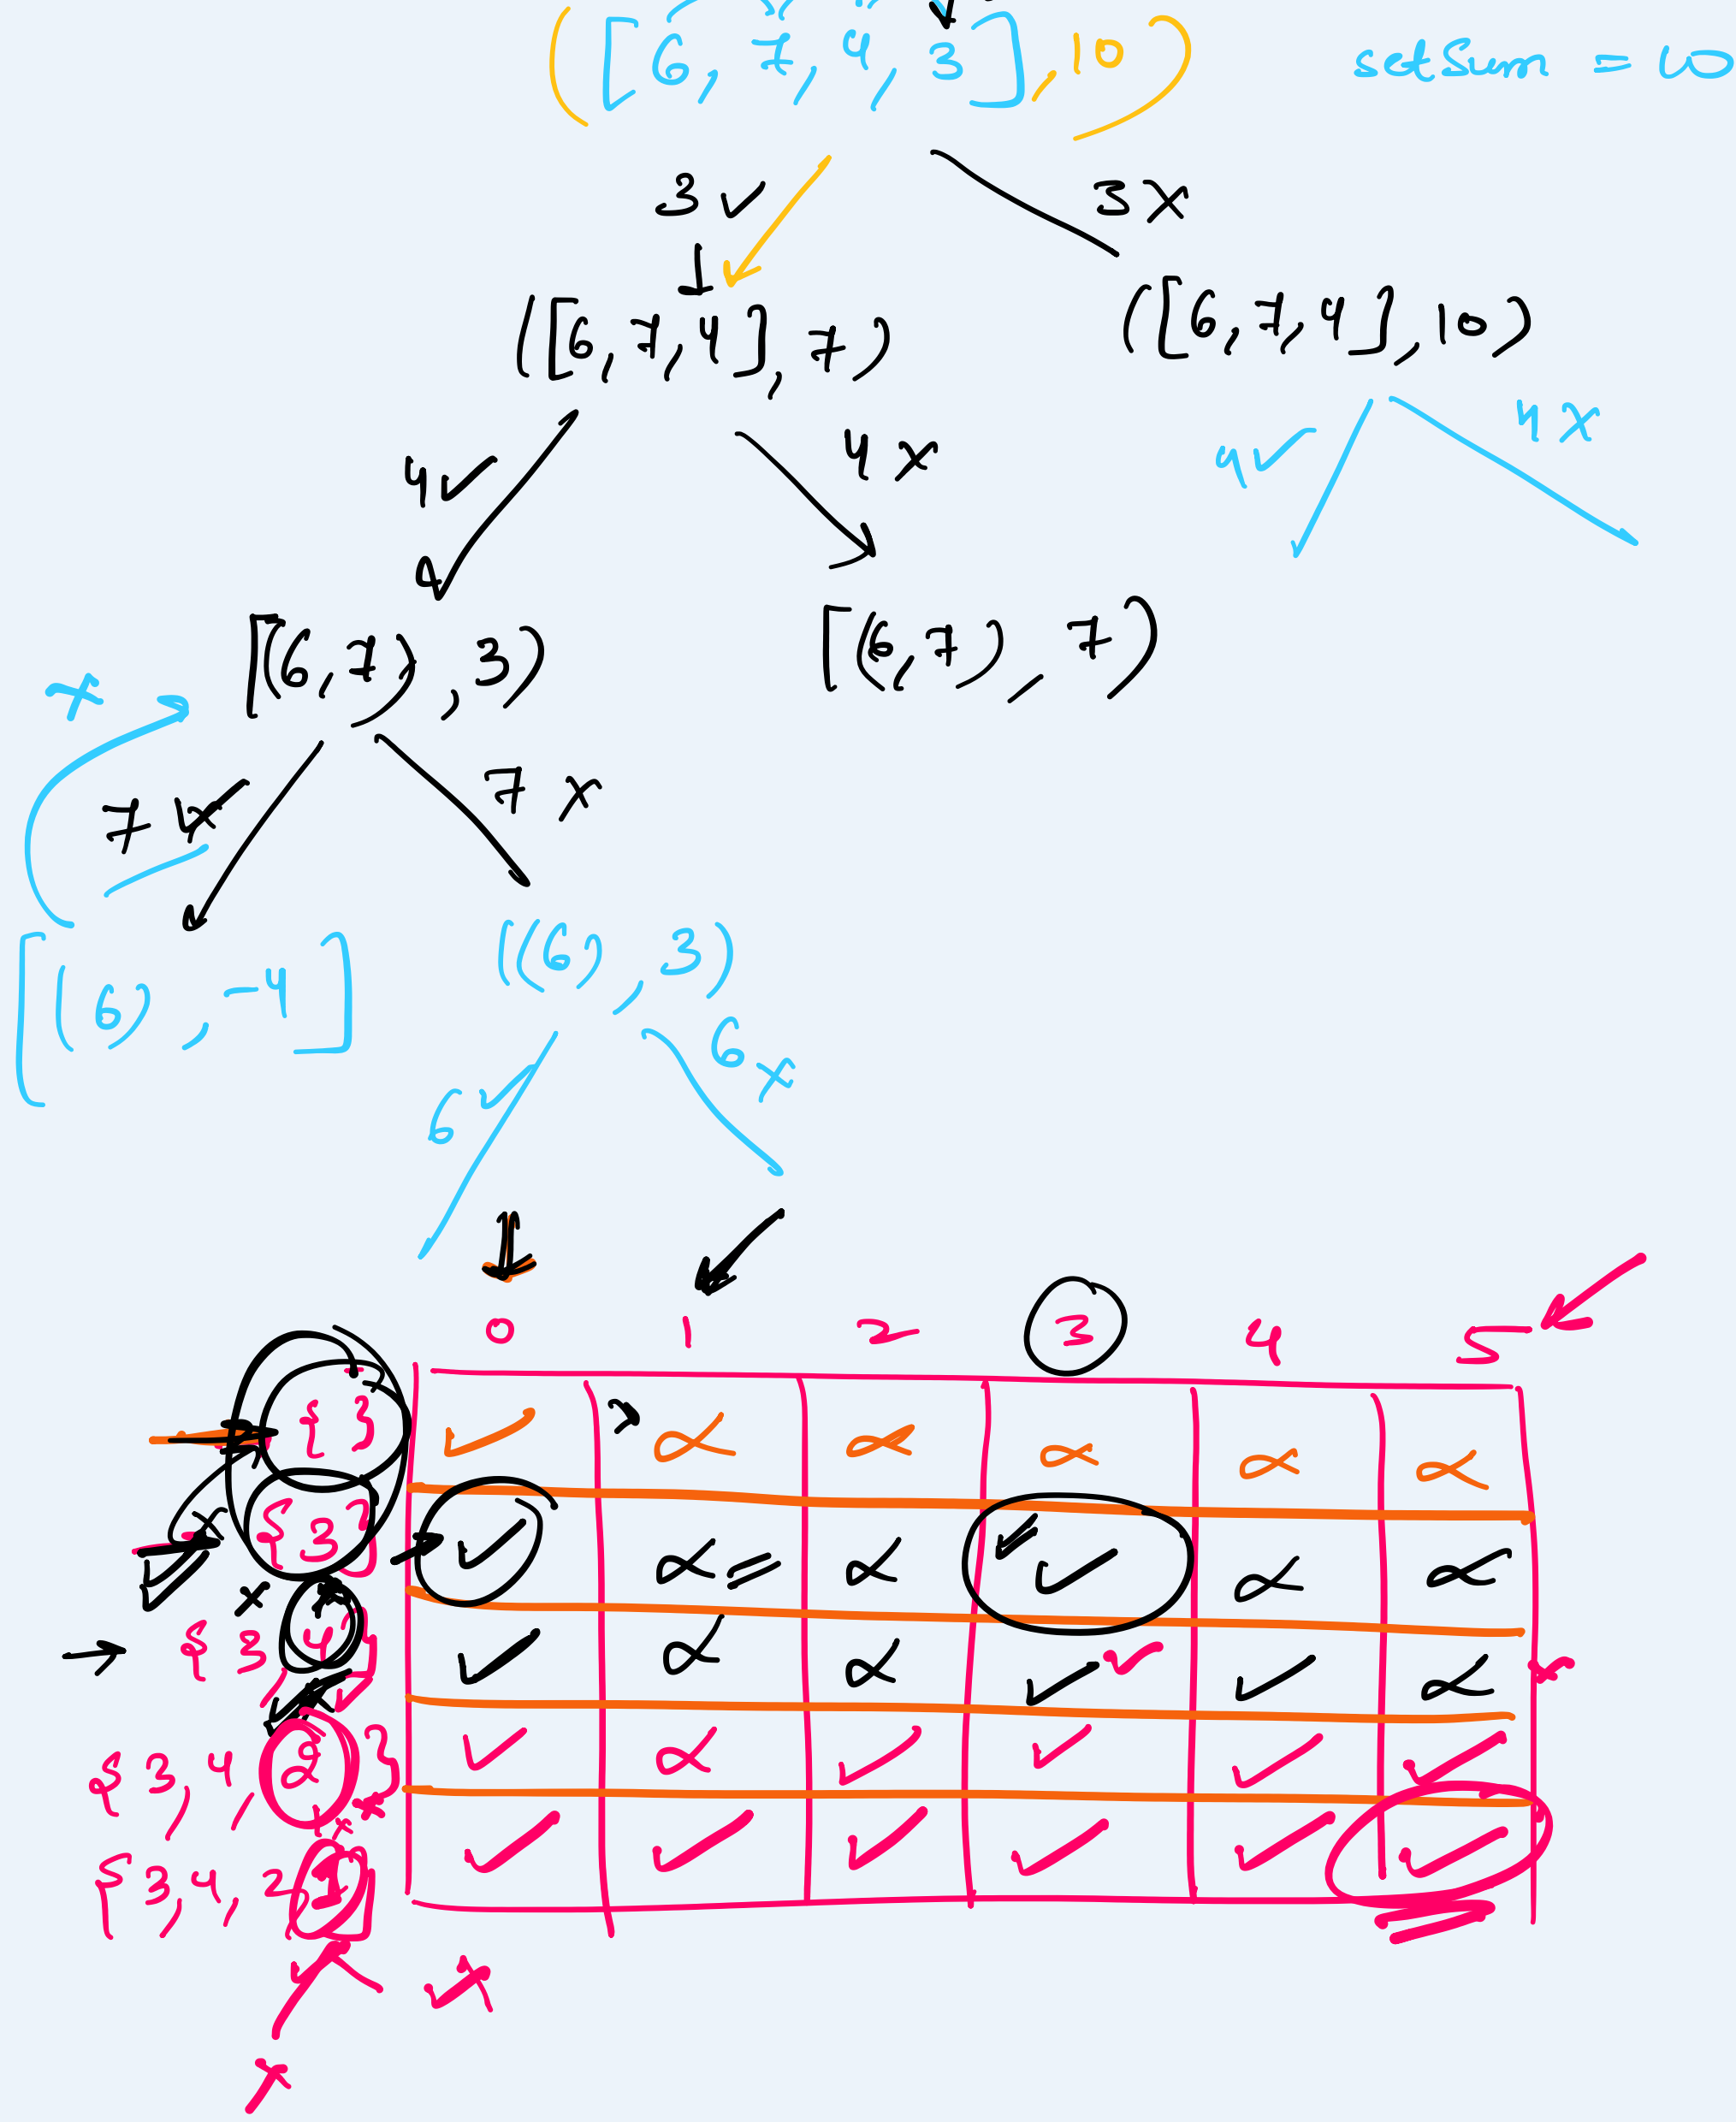 ([6, 7, 4, 3], 10) setSum = 10
3 ✓ 3 x
([6, 7, 4], 7) ([6, 7, 4], 10)
4 ✓ 4 x 4 ✓ 4 x
[(6, 7), 3) [(6, 7), 7)
x
7 7 x
[(6), -4] ((6), 3)
6 ✓ 6 x
0 1 2 3 4 5
{ } ✓ x x x x x
{ 3 } ✓ x x ✓ x x
{ 3 4 } ✓ x x ✓ ✓ ✓ x
{ 3, 4, 2 } ✓ x ✓ ✓ ✓ ✓
{ 3, 4, 2, 1 } ✓ ✓ ✓ ✓ ✓ ✓
x